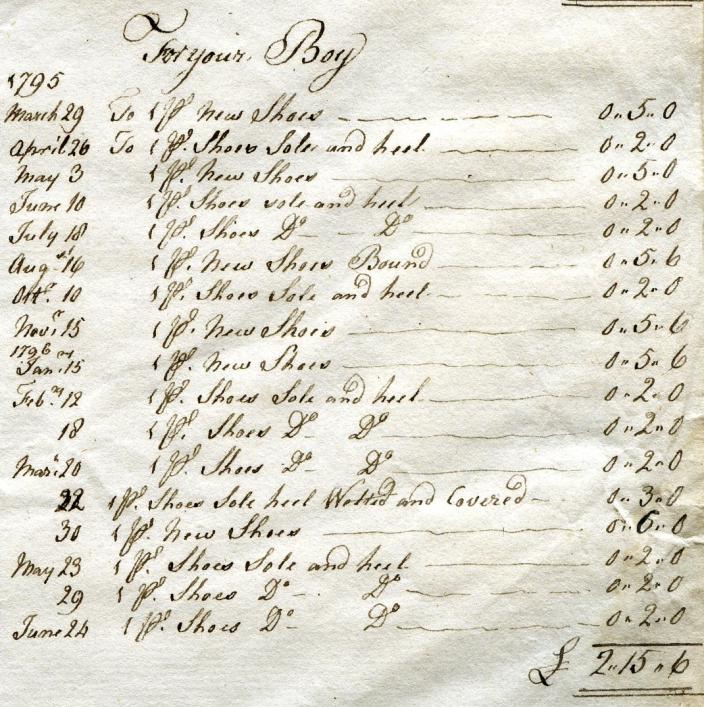 For your Boy
1795
March 29 To 1 Pr. New Shoes 0"5"0
April 26 To 1 Pr. Shoes Sole and heel 0"2"0
May 3 1 Pr. New Shoes 0"5"0
June 10 1 Pr. Shoes sole and heel 0"2"0
July 18 1 Pr. Shoes Do Do 0"2"0
Augst 16 1 Pr. New Shoes Bound 0"5"6
Octr. 10 1 Pr. Shoes Sole and heel 0"2"0
Novr 15 1 Pr. New Shoes 0"5"6
1796
Jany 15 1 Pr. New Shoes 0"5"6
Feby 12 1 Pr. Shoes Sole and heel 0"2"0
18 1 Pr. Shoes Do Do 0"2"0
Mar 20 1 Pr. Shoes Do Do 0"2"0
22 1 Pr. Shoes Sole heel Welted and Covered 0"3"0
30 1 Pr. New Shoes 0"6"0
May 23 1 Pr. Shoes Sole and heel 0"2"0
29 1 Pr. Shoes Do Do 0"2"0
June 24 1 Pr. Shoes Do Do 0"2"0
£ 2"15"6